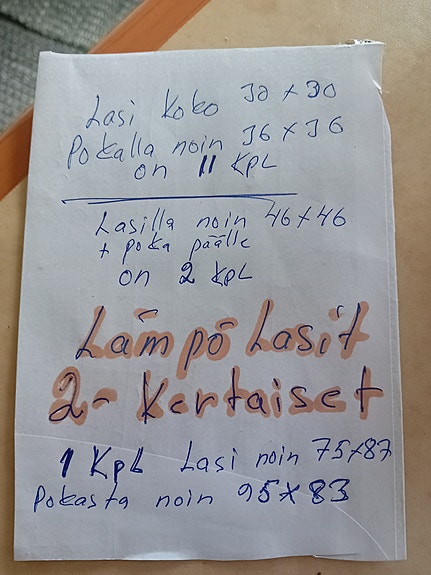 Lasi Koko 30 x 30
Pokalla noin 36 x 36
on 11 KPL
Lasilla noin 46 x 46
+ poka päälle
on 2 KPL
Lämpö Lasit
2- Kertaiset
1 KPL Lasi noin 75x87
Pokasta noin 95x83